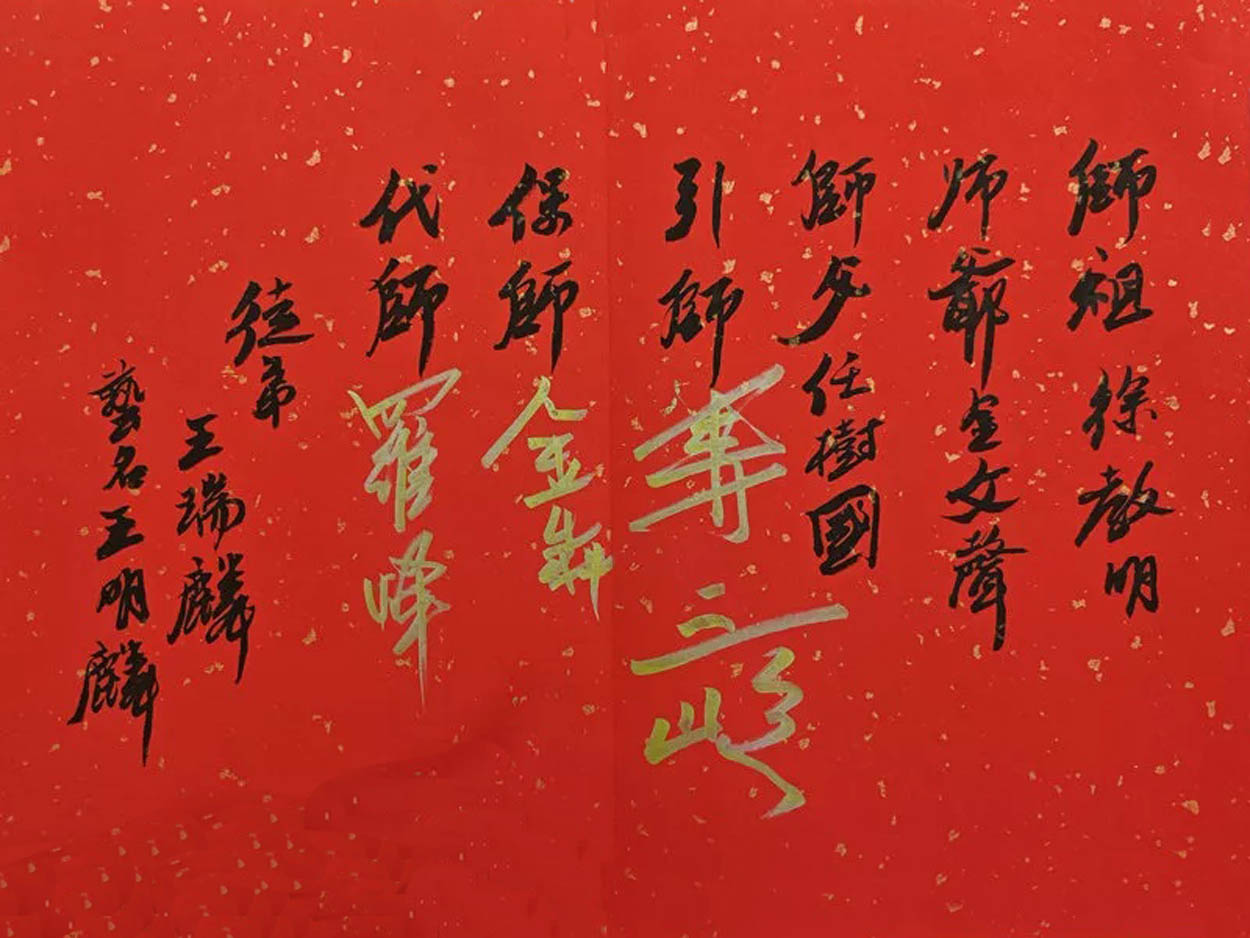 師祖 徐教明
师爺 金文聲
師父 任樹國
引師
保師 金犇
代師 羅峰
徒弟
王瑞麟
藝名 王明麟